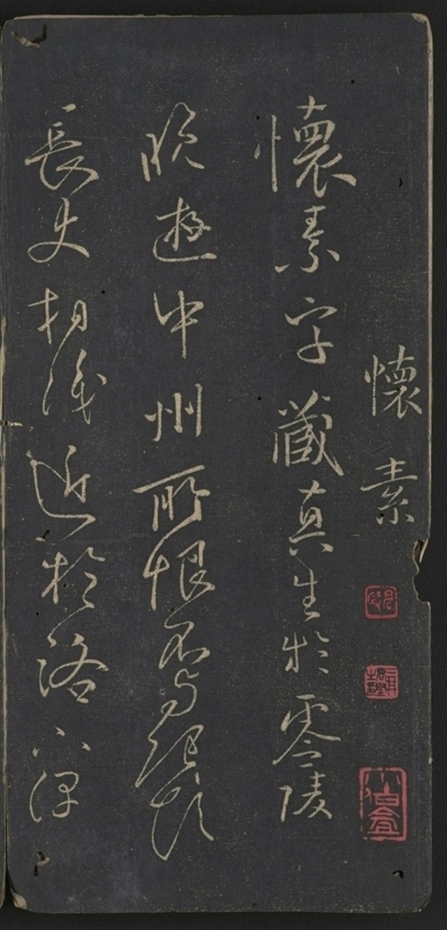 懷素
懷素字藏真生於零陵
晚遊中州所恨不與張顛
長史相識近於洛下